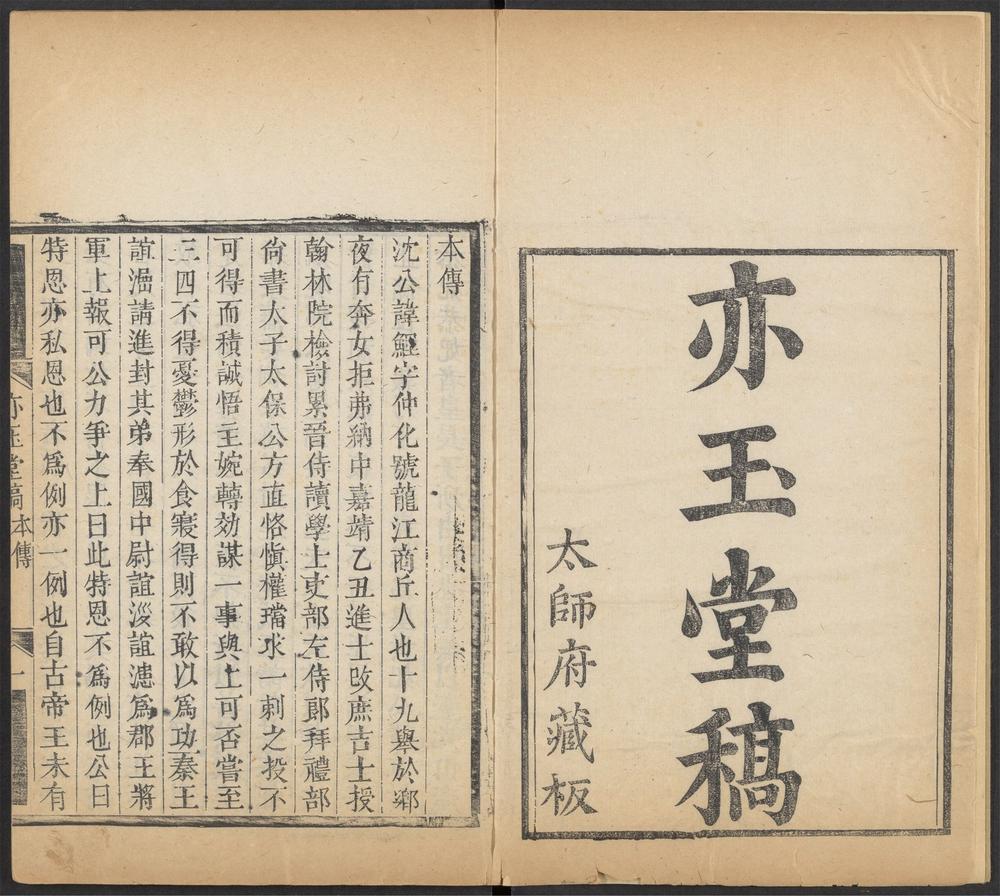 亦玉堂稿
太師府藏板
本傳
沈公諱鯉字仲化號龍江商丘人也十九舉於鄉
夜有奔女拒弗納中嘉靖乙丑進士改庶吉士授
翰林院檢討累晉侍讀學士吏部左侍郎拜禮部
尚書太子太保公方直恪愼權璫求一刺之投不
可得而積誠悟主婉轉効謀一事與上可否嘗至
三四不得憂鬱形於食寢得則不敢以爲功秦王
誼漶請進封其弟奉國中尉誼㳠誼漶爲郡王將
軍上報可公力爭之上曰此特恩不爲例也公曰
特恩亦私恩也不爲例亦一例也自古帝王未有
亦玉堂稿
本傳
一